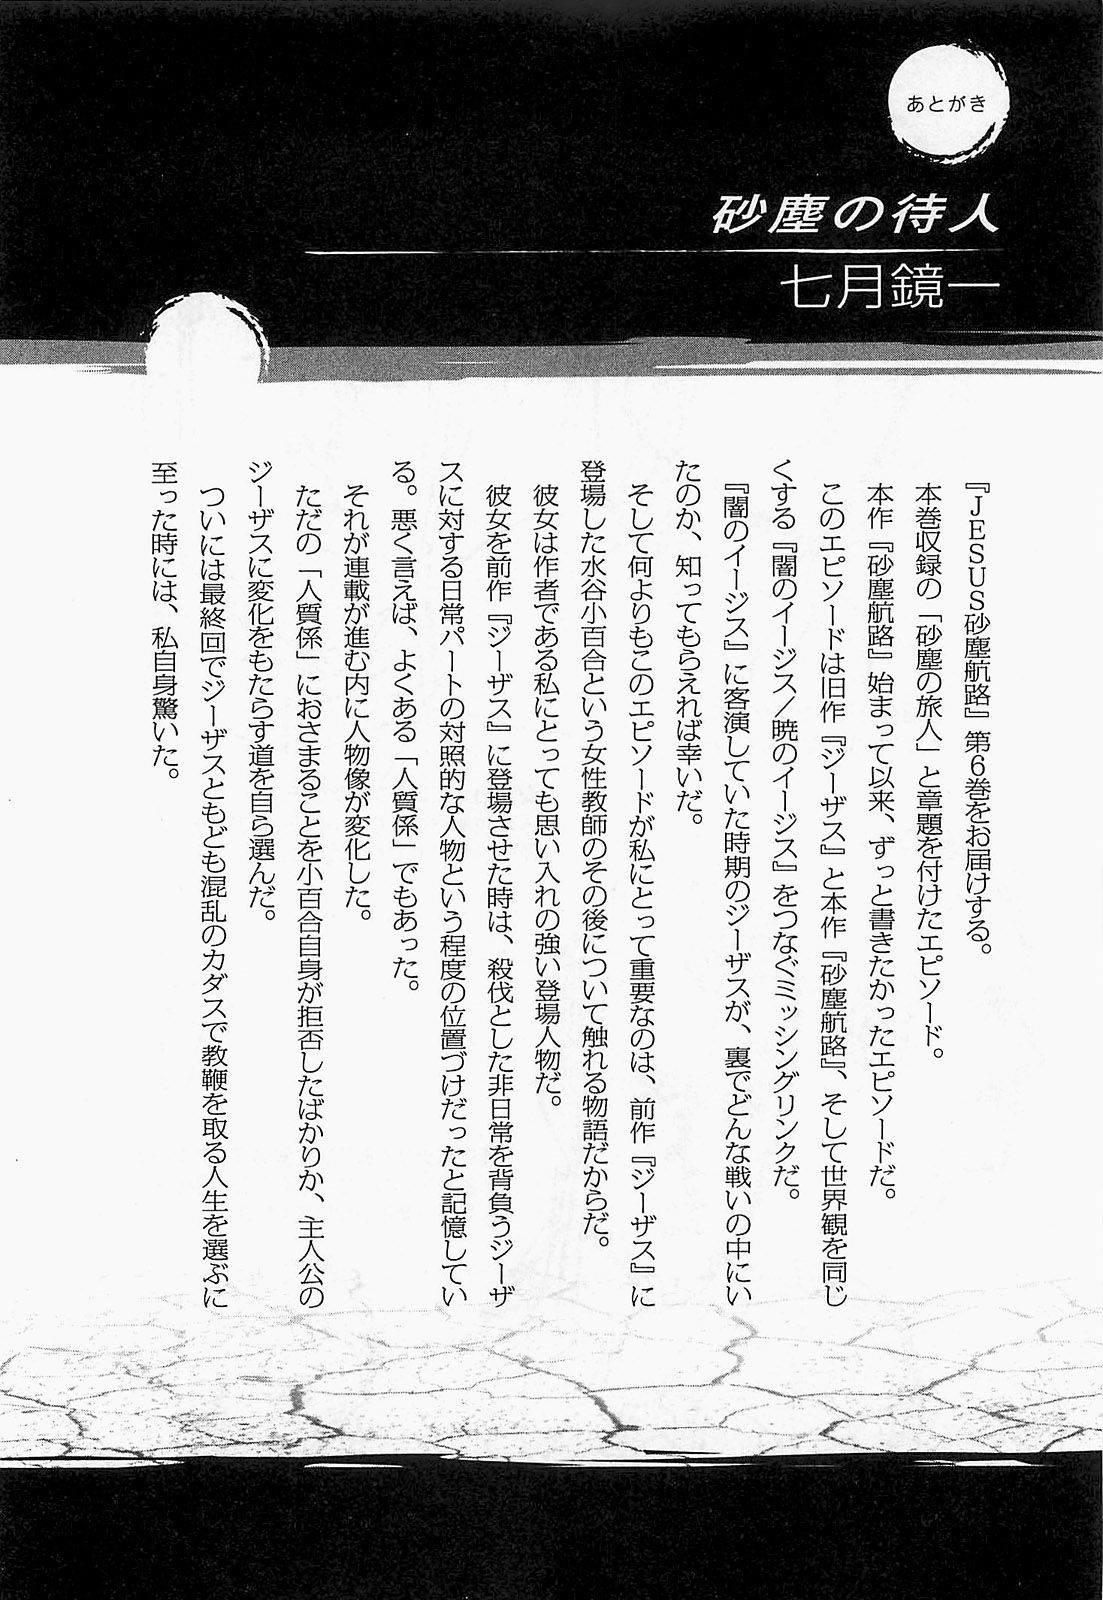 あとがき
砂塵の待人
七月鏡一
『ＪＥＳＵＳ砂塵航路』第６巻をお届けする。
本巻収録の「砂塵の旅人」と章題を付けたエピソード。
本作『砂塵航路』始まって以来、ずっと書きたかったエピソードだ。
このエピソードは旧作『ジーザス』と本作『砂塵航路』、そして世界観を同じ
くする『闇のイージス／暁のイージス』をつなぐミッシングリンクだ。
『闇のイージス』に客演していた時期のジーザスが、裏でどんな戦いの中にい
たのか、知ってもらえれば幸いだ。
そして何よりもこのエピソードが私にとって重要なのは、前作『ジーザス』に
登場した水谷小百合という女性教師のその後について触れる物語だからだ。
彼女は作者である私にとっても思い入れの強い登場人物だ。
彼女を前作『ジーザス』に登場させた時は、殺伐とした非日常を背負うジーザ
スに対する日常パートの対照的な人物という程度の位置づけだったと記憶してい
る。悪く言えば、よくある「人質係」でもあった。
それが連載が進む内に人物像が変化した。
ただの「人質係」におさまることを小百合自身が拒否したばかりか、主人公の
ジーザスに変化をもたらす道を自ら選んだ。
ついには最終回でジーザスともども混乱のカダスで教鞭を取る人生を選ぶに
至った時には、私自身驚いた。